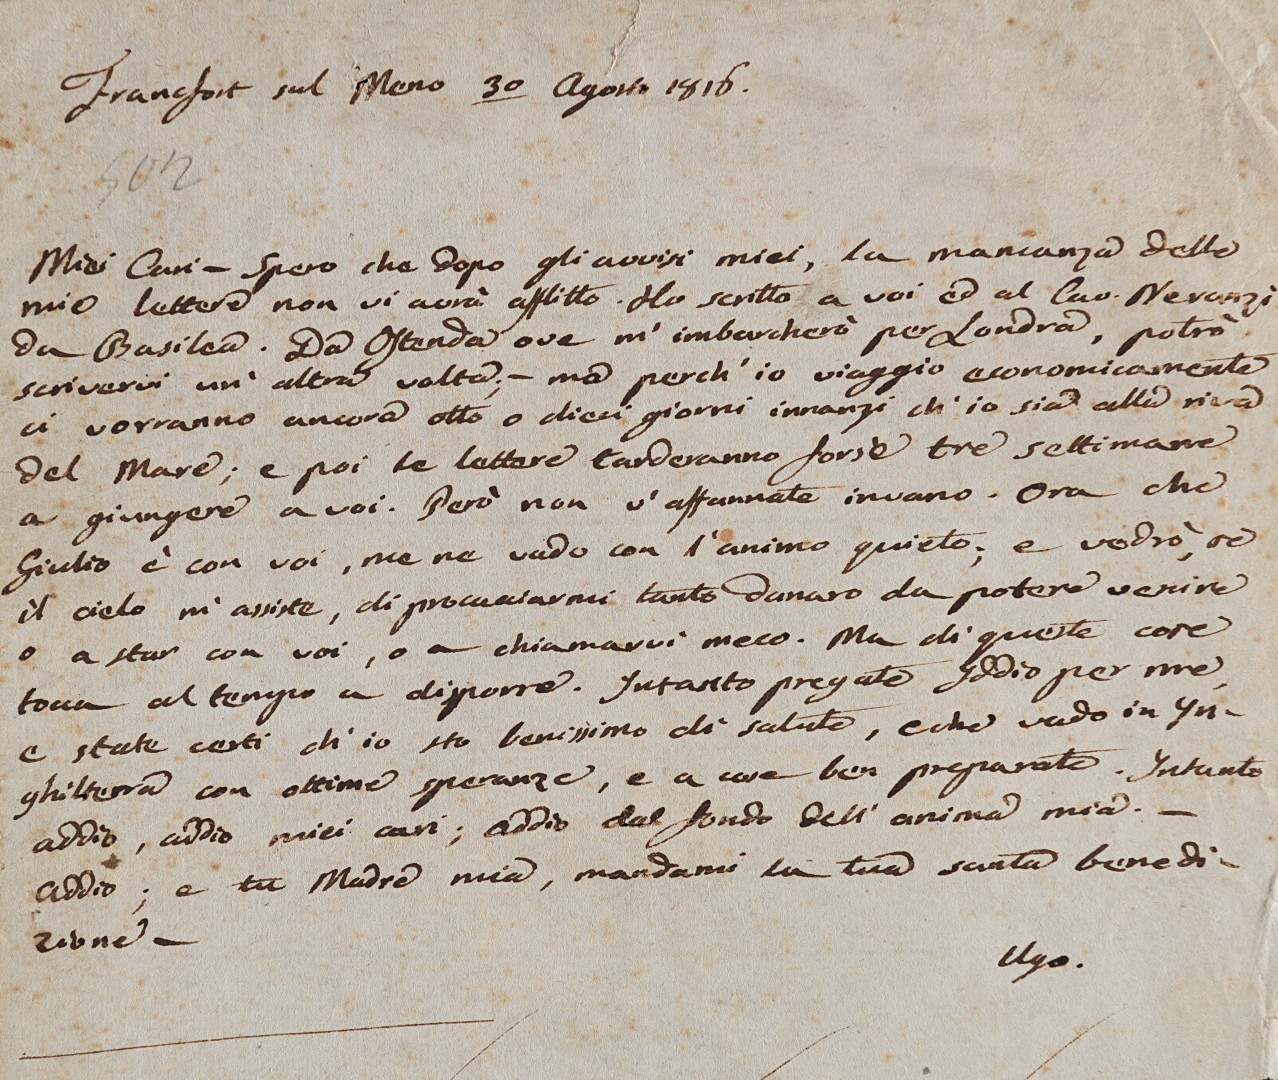 Francfort sul Meno 30 Agosto 1816.
502
Miei Cari – Spero che dopo gli avvisi miei, la mancanza delle
mie lettere non vi avrà afflitto. Ho scritto a voi ed al Cav. Neranzi
da Basilea. Da Ostenda ove m' imbarcherò per Londra, potrò
scrivervi un' altra volta; – ma perch' io viaggio economicamente
ci vorranno ancora otto o dieci giorni innanzi ch' io sia alla riva
del Mare; e poi le lettere tarderanno forse tre settimane
a giungere a voi. Però non v' affannate invano. Ora che
Giulio è con voi, me ne vado con l'animo quieto; e vedrò, se
il cielo m' assiste, di procacciarmi tanto danaro da potere venire
o a star con voi, o a chiamarvi meco. Ma di queste cose
tocca al tempo a disporre. Intanto pregate Iddio per me,
e state certi ch' io sto benissimo di salute, e che vado in In-
ghilterra con ottime speranze, e a cose ben preparate. Intanto
addio, addio miei cari; addio dal fondo dell' anima mia. –
Addio; e tu Madre mia, mandami la tua santa benedi-
zione –
Ugo.